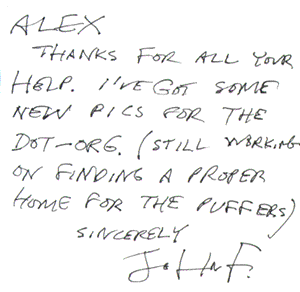 ALEX
THANKS FOR ALL YOUR
HELP. I'VE GOT SOME
NEW PICS FOR THE
DOT-ORG. (STILL WORKING
ON FINDING A PROPER
HOME FOR THE PUFFERS)
SINCERELY
JOHN F.